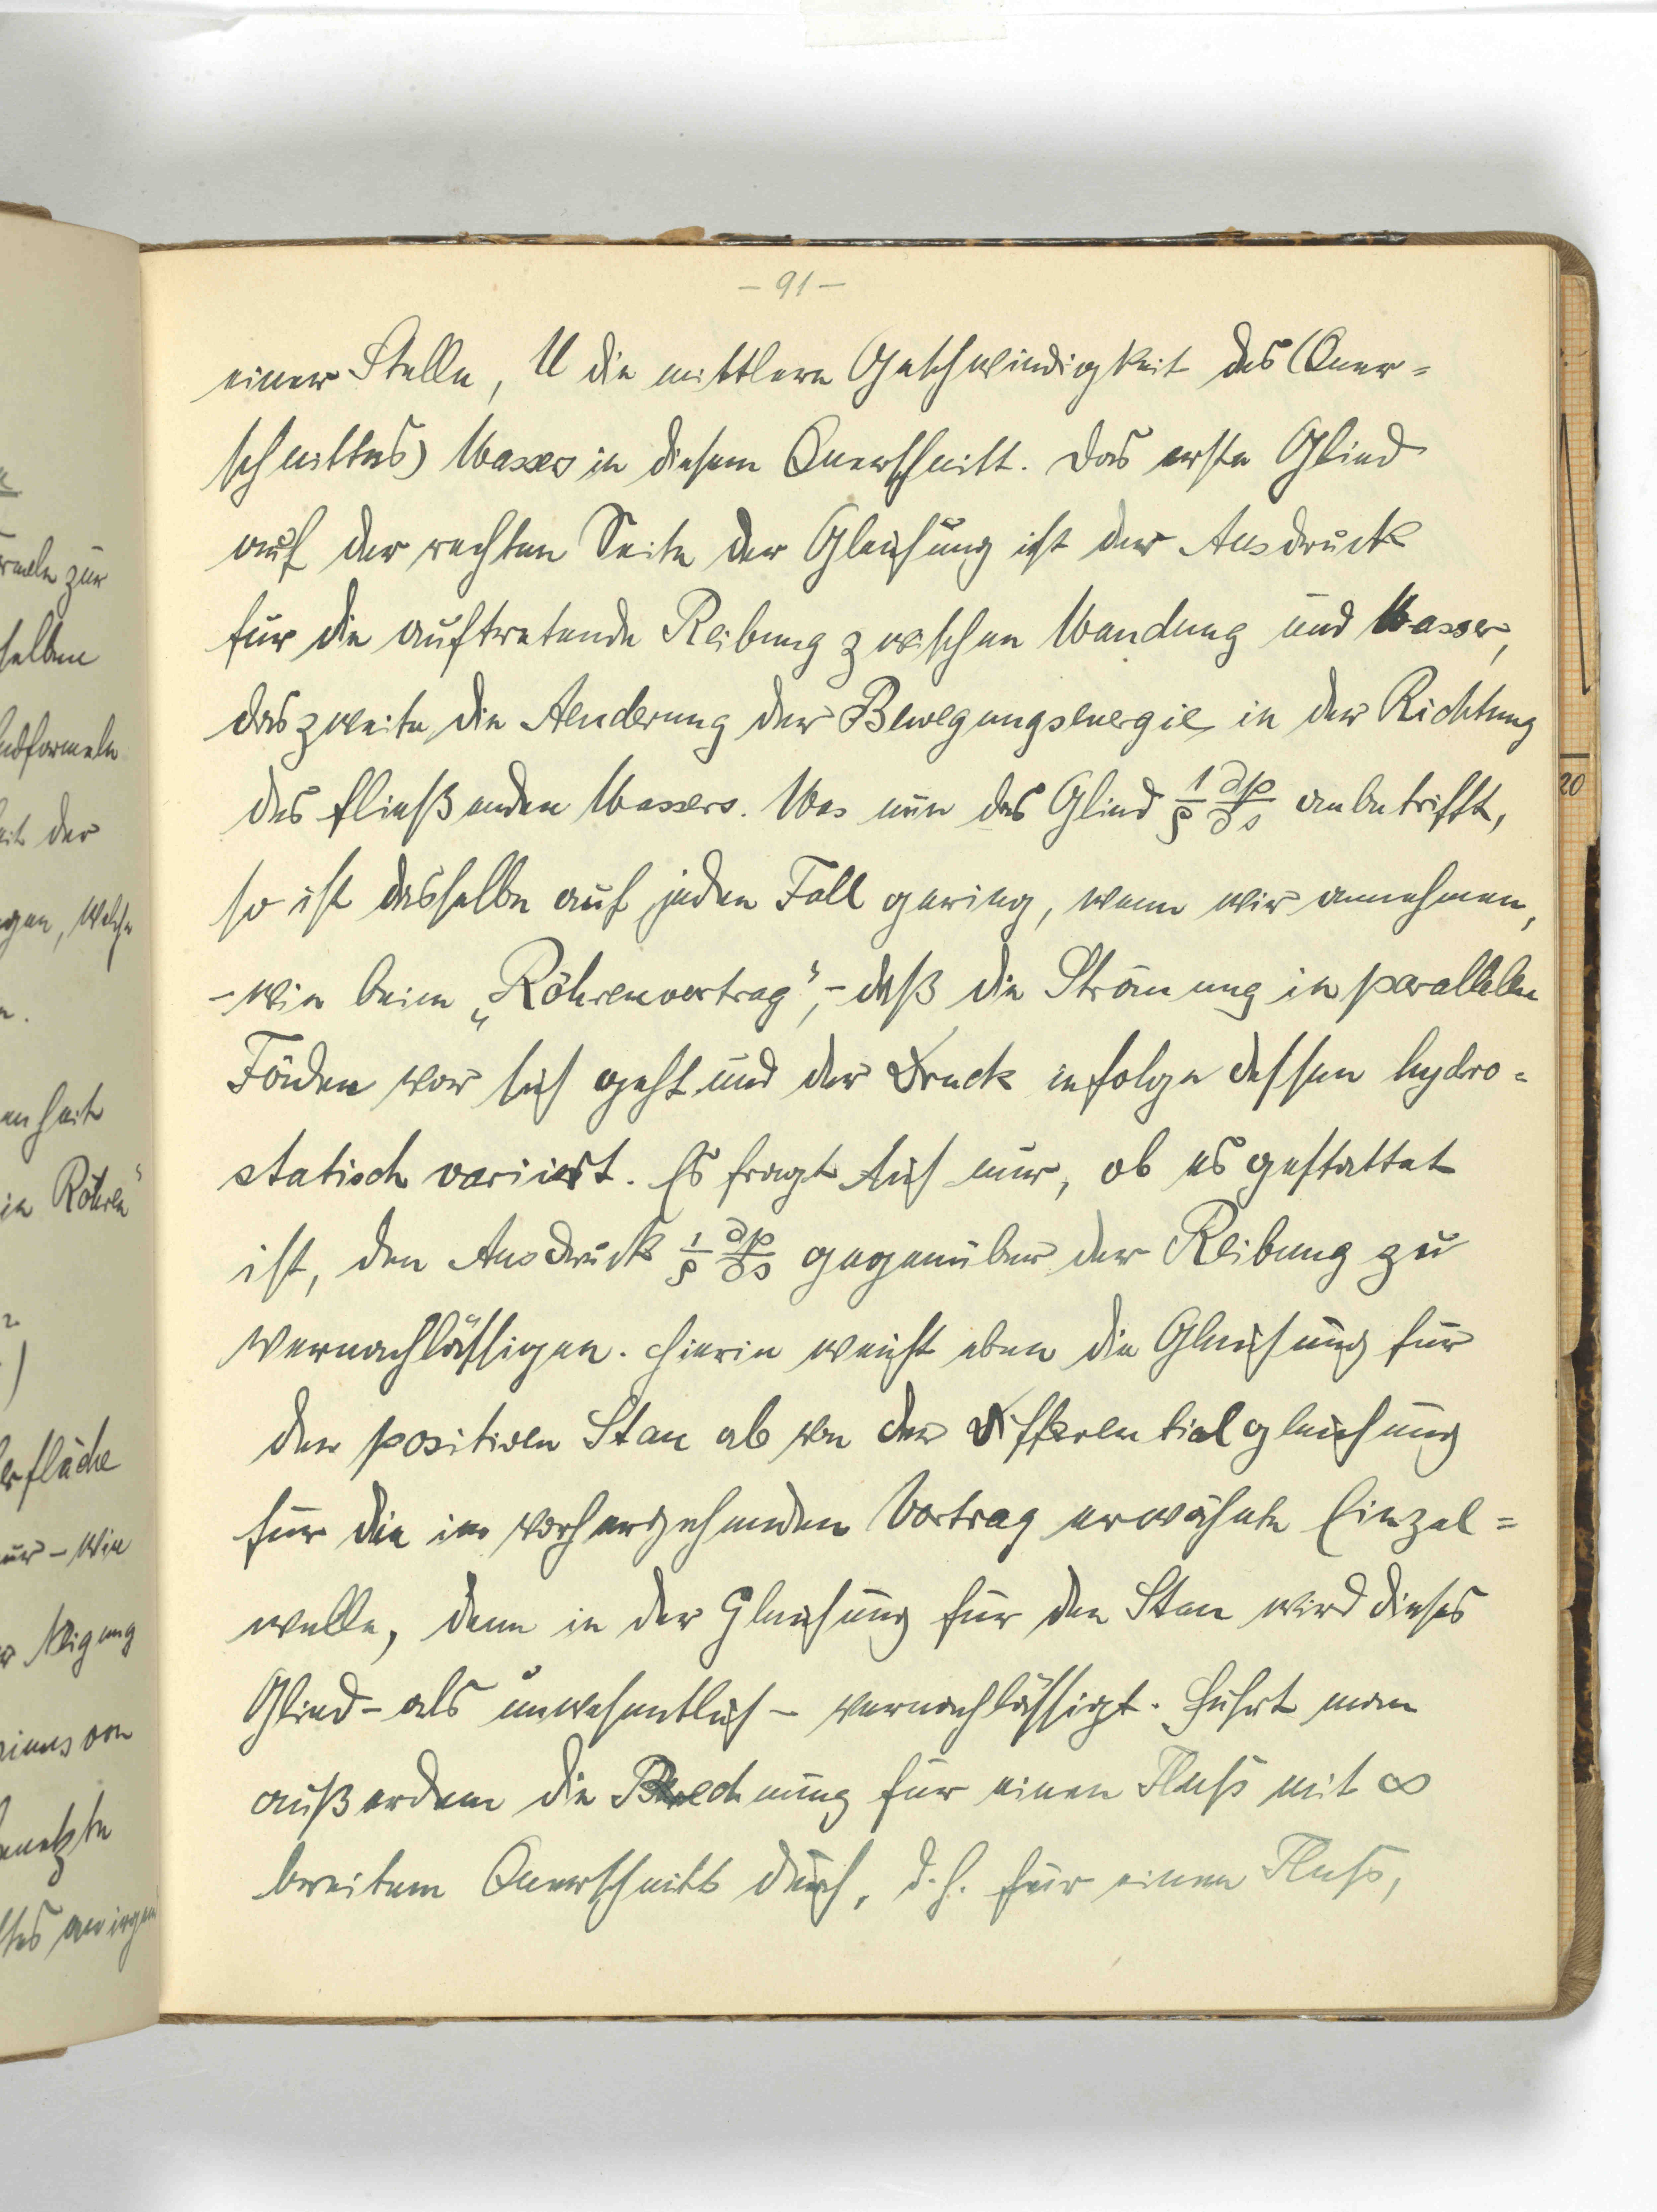 - 91 -
einer Stelle, U die mittlere Geschwindigkeit des (Quer=
schnittes) Wassers in diesem Querschnitt. Das erste Glied
auf der rechten Seite der Gleichung ist der Ausdruck
für die auftretende Reibung zwischen Wandung und Wasser,
das zweite die Aenderung der Bewegungsenergie in der Richtung
des fließenden Wassers. Was nun das Glied 1/ρ ∂p/∂s anbetrifft,
so ist dasselbe auf jeden Fall gering, wenn wir annehmen,
- wie beim „Röhrenvortrag", - daß die Strömung in parallelen
Fäden vor sich geht und der Druck infolge dessen hydro=
statisch variiert. Es fragt sich nur, ob es gestattet
ist, den Ausdruck 1/ρ ∂p/∂s gegenüber der Reibung zu
vernachlässigen. Hierin weicht eben die Gleichung für
den positiven Stau ab von der Differentialgleichung
für die im vorhergehenden Vortrag erwähnte Einzel=
welle, denn in der Gleichung für den Stau wird dieses
Glied - als unwesentlich - vernachlässigt. Führt man
außerdem die Rechnung für einen Fluß mit ∞
breitem Querschnitt durch, d.h. für einen Fluß,
rmeln zur
selben
ndformeln
eit der
gen, welche
enheit
in Röhren"
erfläche
nur - wie
Neigung
benetzte
20